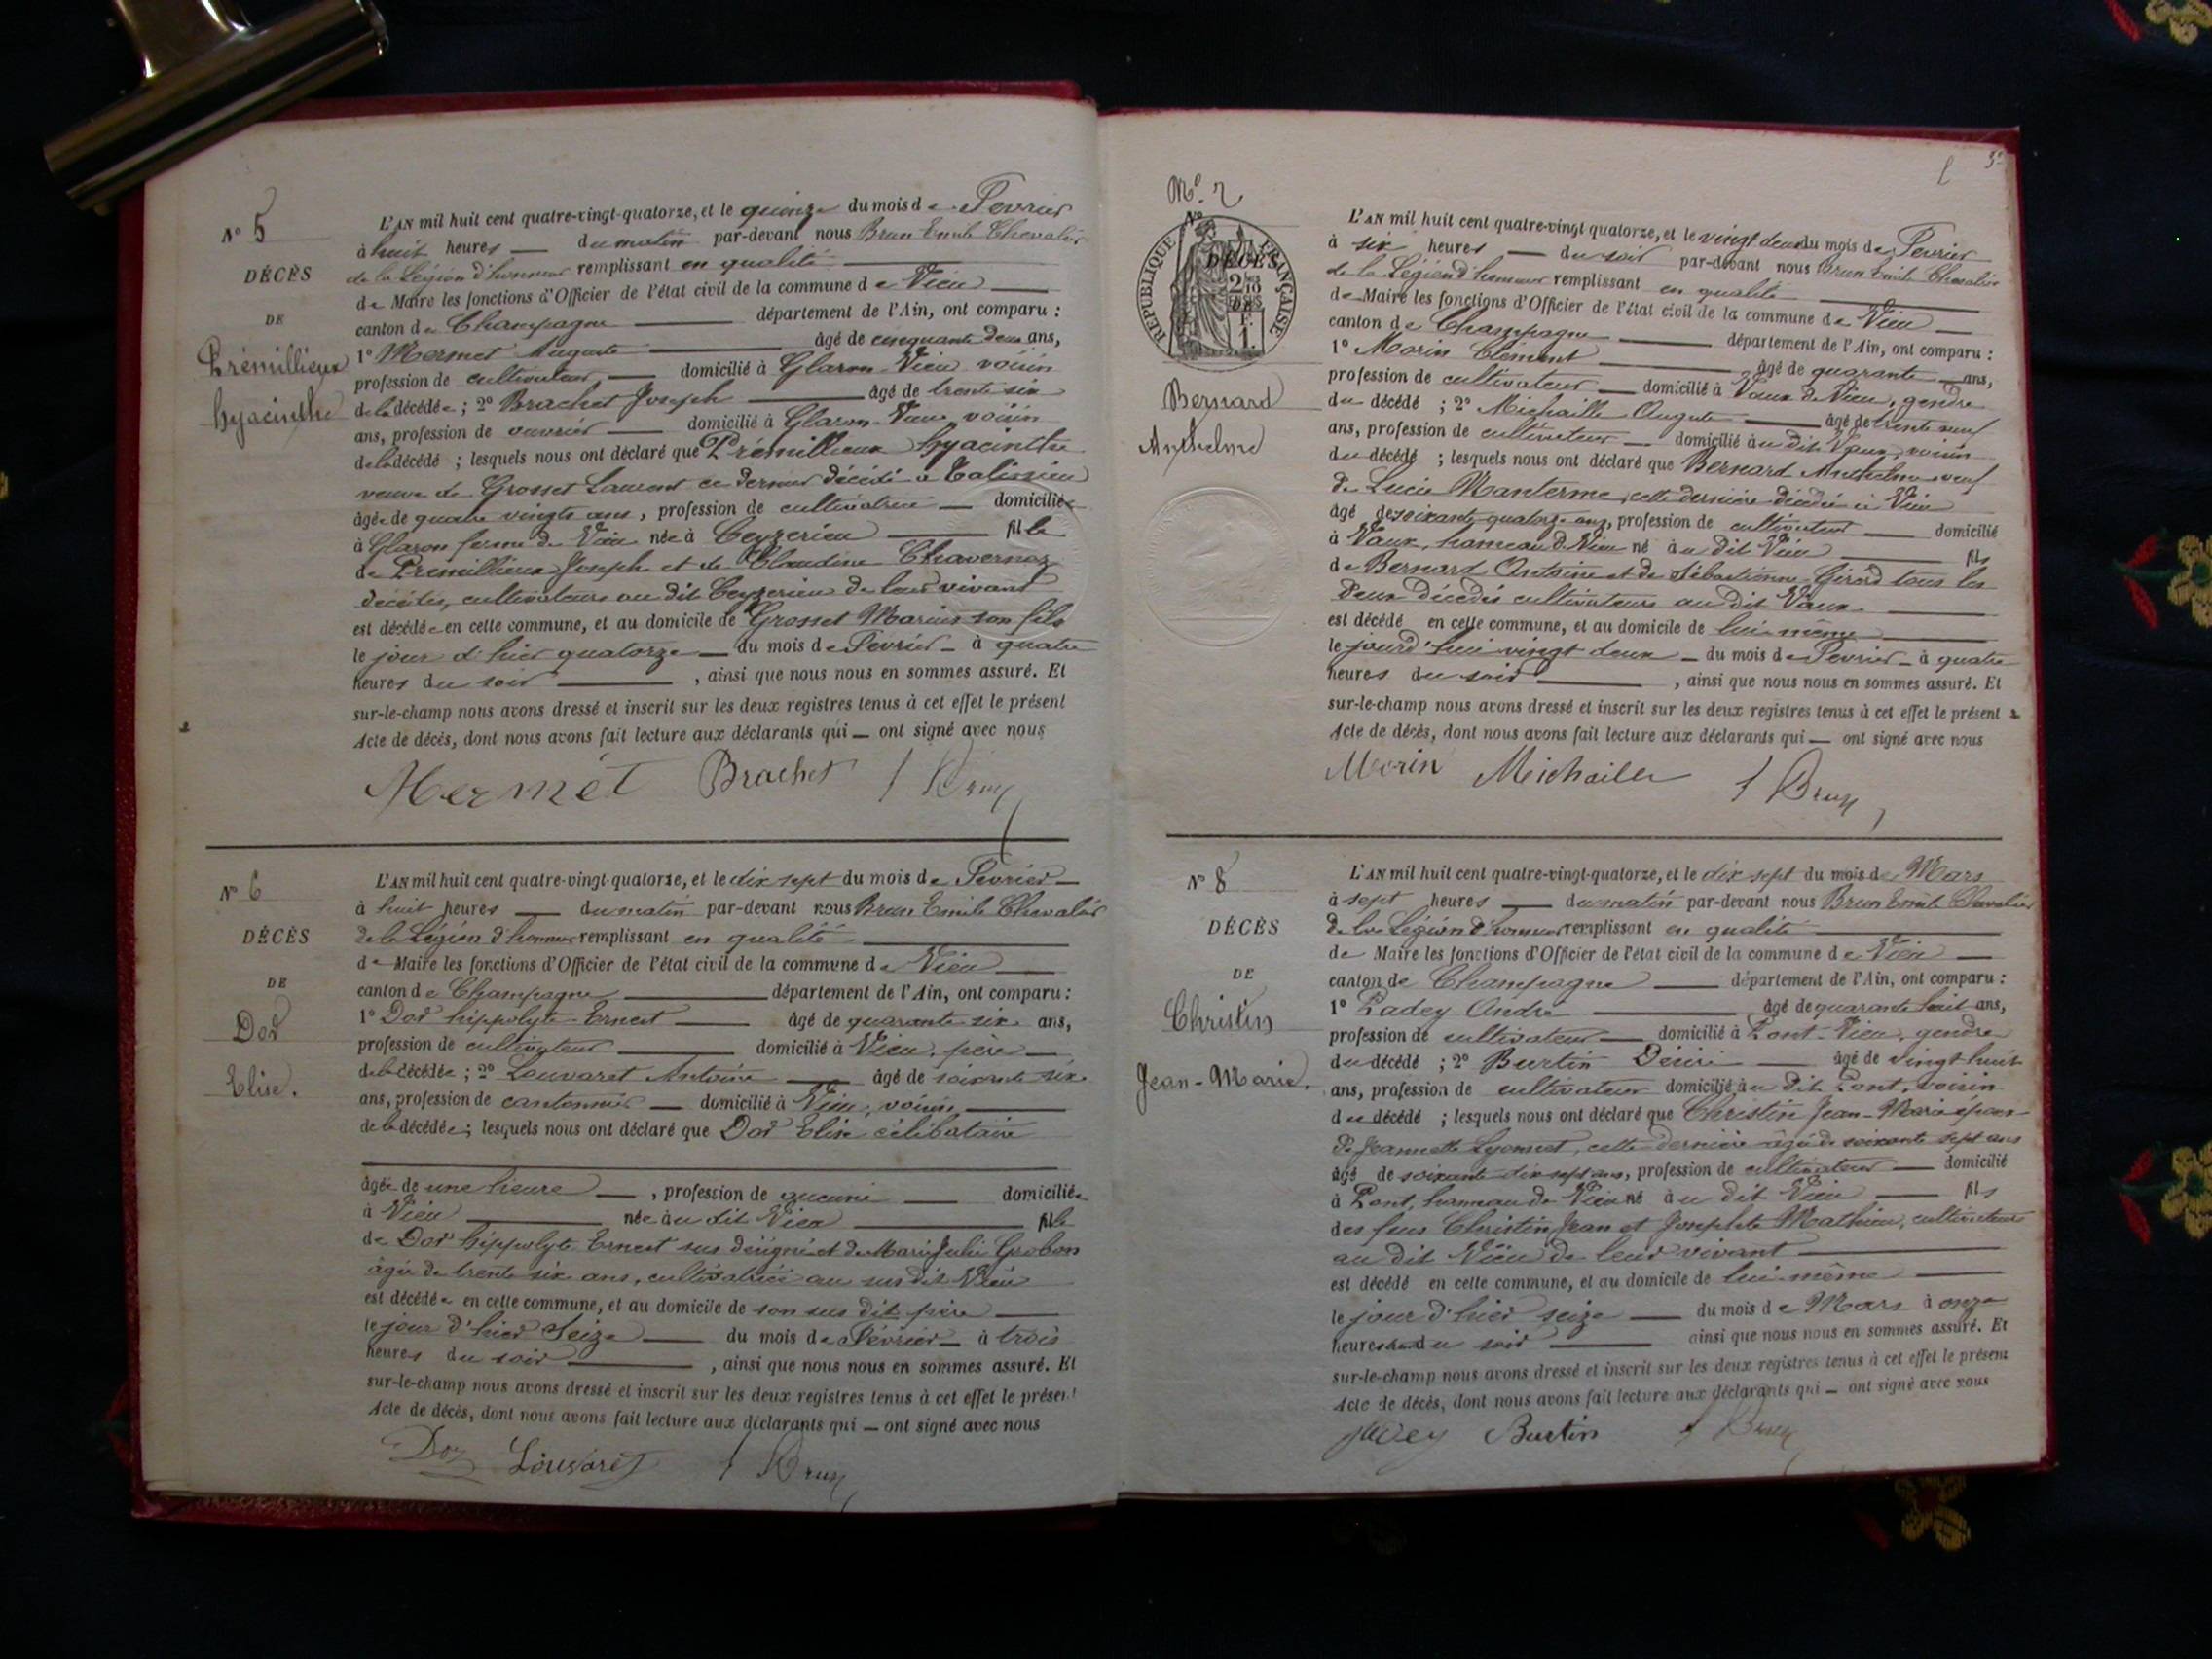 N° 5
DÉCÈS
DE
Prémillieux
hyacinthe
L'AN mil huit cent quatre-vingt-quatorze, et le quinze du mois de Fevrier
à huit heures — du matin par-devant nous Brun Emile Chevalier
de la Légion d'honneur remplissant en qualité
de Maire les fonctions d'Officier de l'état civil de la commune de Vieu
canton de Champagne — département de l'Ain, ont comparu :
1° Mermet Auguste — âgé de cinquante deux ans,
profession de cultivateur — domicilié à Glaron Vieu voisin
de la décédée ; 2° Brachet Joseph — âgé de trente six
ans, profession de ouvrier — domicilié à Glaron Vieu voisin
de la décédé ; lesquels nous ont déclaré que Prémillieux hyacinthe
veuve de Grosset Laurent ce dernier décédé à Talissieu
âgée de quatre vingts ans, profession de cultivatrice — domiciliée
à Glaron ferme de Vieu née à Ceyzerieu — fille
de Premillieux Joseph et de Claudine Chavernoz
décédés, cultivateurs au dit Ceyzerieu de leur vivant
est décédée en cette commune, et au domicile de Grosset Marius son fils
le jour d'hier quatorze — du mois de Février — à quatre
heures du soir — , ainsi que nous nous en sommes assuré. Et
sur-le-champ nous avons dressé et inscrit sur les deux registres tenus à cet effet le présent
Acte de décès, dont nous avons fait lecture aux déclarants qui — ont signé avec nous
Mermet Brachet Brun
N° 6
DÉCÈS
DE
Dod
Elise.
L'AN mil huit cent quatre-vingt-quatorze, et le dix sept du mois de Fevrier —
à huit heures — du matin par-devant nous Brun Emile Chevalier
de la Légion d'honneur remplissant en qualité
de Maire les fonctions d'Officier de l'état civil de la commune de Vieu
canton de Champagne — département de l'Ain, ont comparu :
1° Dod hippolyte Ernest — âgé de quarante six ans,
profession de cultivateur — domicilié à Vieu, père —
de la décédée ; 2° Louvaret Antoine — âgé de soixante six
ans, profession de cantonnier — domicilié à Vieu, voisin
de la décédée ; lesquels nous ont déclaré que Dod Elise célibataire
âgée de une heure — , profession de aucune — domiciliée
à Vieu — née au dit Vieu — fille
de Dod hippolyte Ernest sus désigné et de Marie Julie Grobon
âgée de trente six ans, cultivatrice au susdit Vieu
est décédée en cette commune, et au domicile de son sus dit père —
le jour d'hier Seize — du mois de Février — à trois
heures du soir — , ainsi que nous nous en sommes assuré. Et
sur-le-champ nous avons dressé et inscrit sur les deux registres tenus à cet effet le présent
Acte de décès, dont nous avons fait lecture aux déclarants qui — ont signé avec nous
Dod Louvaret Brun
N° 7
N°
RÉPUBLIQUE FRANÇAISE
DÉCÈS
DE
Bernard
Anthelme
L'AN mil huit cent quatre-vingt quatorze, et le vingt deux du mois de Fevrier
à six heures — du soir par-devant nous Brun Emile Chevalier
de la Légion d'honneur remplissant en qualité
de Maire les fonctions d'Officier de l'état civil de la commune de Vieu
canton de Champagne — département de l'Ain, ont comparu :
1° Morin Clément — âgé de quarante — ans,
profession de cultivateur — domicilié à Vaux de Vieu, gendre
du décédé ; 2° Michaille Auguste — âgé de trente neuf
ans, profession de cultivateur — domicilié au dit Vaux, voisin
du décédé ; lesquels nous ont déclaré que Bernard Anthelme veuf
de Lucie Manterme, cette dernière décédée à Vieu
âgé de soixante quatorze ans, profession de cultivateur — domicilié
à Vaux, hameau de Vieu né au dit Vieu — fils
de Bernard Antoine et de Sébastienne Girod tous les
deux décédés cultivateurs au dit Vaux.
est décédé en cette commune, et au domicile de lui même
le jourd'hui vingt deux — du mois de Fevrier — à quatre
heures du soir — , ainsi que nous nous en sommes assuré. Et
sur-le-champ nous avons dressé et inscrit sur les deux registres tenus à cet effet le présent
Acte de décès, dont nous avons fait lecture aux déclarants qui — ont signé avec nous
Morin Michaille Brun
N° 8
DÉCÈS
DE
Christin
Jean-Marie.
L'AN mil huit cent quatre-vingt-quatorze, et le dix sept du mois de Mars
à sept heures — du matin par-devant nous Brun Emile Chevalier
de la Légion d'honneur remplissant en qualité
de Maire les fonctions d'Officier de l'état civil de la commune de Vieu —
canton de Champagne — département de l'Ain, ont comparu :
1° Padey André — âgé de quarante huit ans,
profession de cultivateur — domicilié à Pont-Vieu, gendre
du décédé ; 2° Burtin Désiré — âgé de vingt huit
ans, profession de cultivateur domicilié au dit Pont, voisin
du décédé ; lesquels nous ont déclaré que Christin Jean-Marie époux
de Jeannette Lyonnet, cette dernière âgée de soixante sept ans
âgé de soixante dix sept ans, profession de cultivateur — domicilié
à Pont, hameau de Vieu né au dit Vieu — fils
des feus Christin Jean et Josephte Mathieu, cultivateurs
au dit Vieu de leur vivant
est décédé en cette commune, et au domicile de lui même
le jour d'hier seize — du mois de Mars à onze
heures du soir — ainsi que nous nous en sommes assuré. Et
sur-le-champ nous avons dressé et inscrit sur les deux registres tenus à cet effet le présent
Acte de décès, dont nous avons fait lecture aux déclarants qui — ont signé avec nous
Padey Burtin Brun